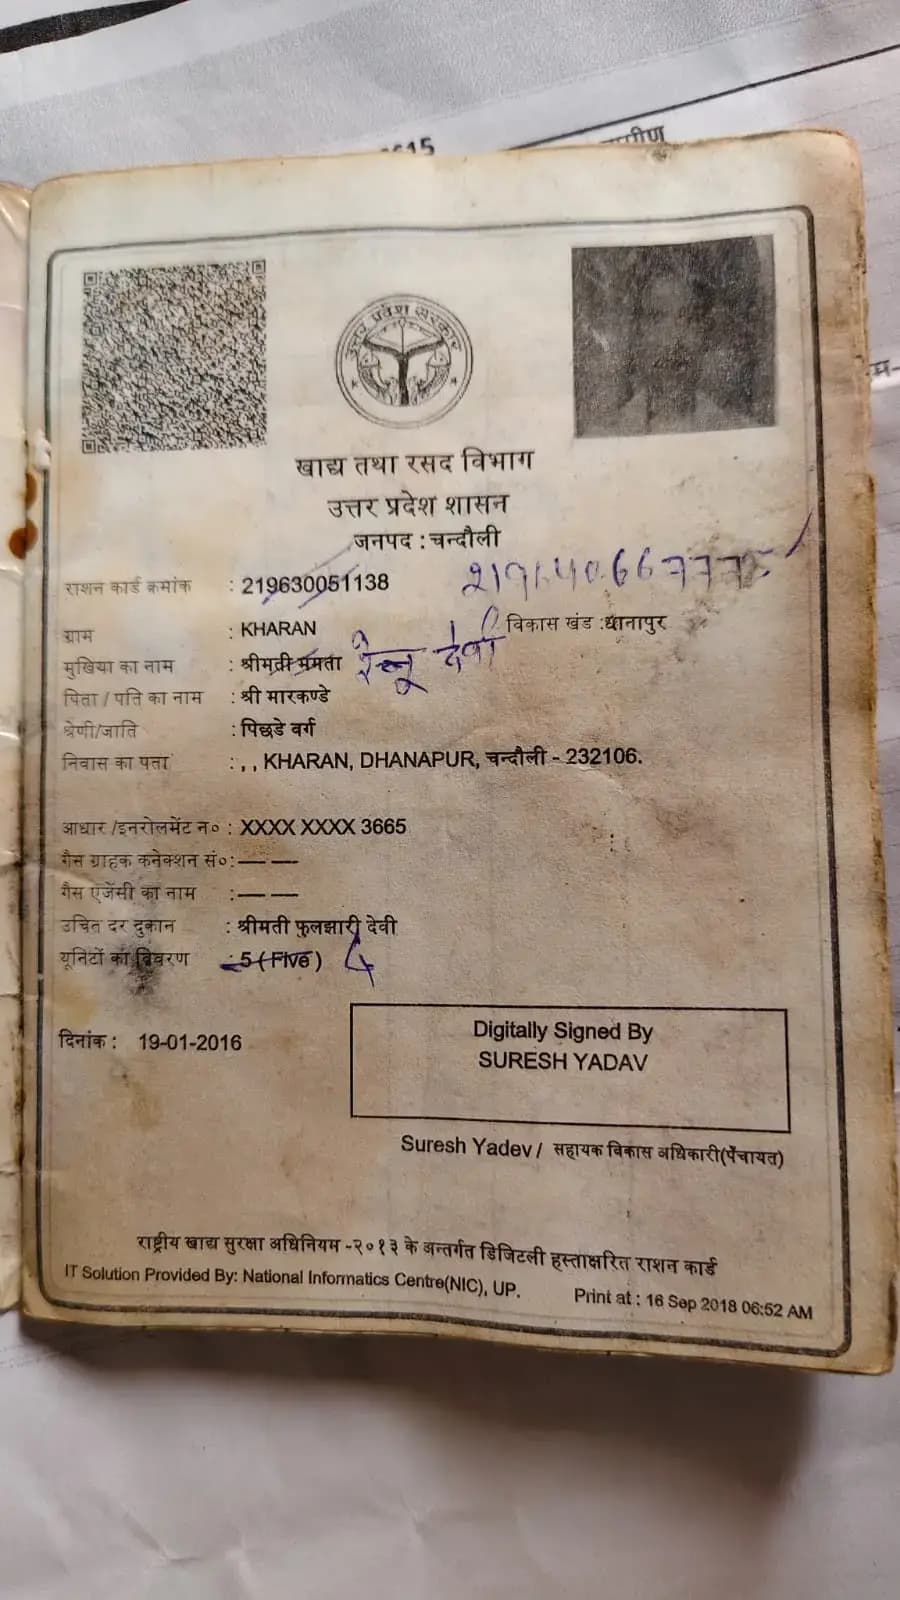 615
उत्तर प्रदेश सरकार
खाद्य तथा रसद विभाग
उत्तर प्रदेश शासन
जनपद : चन्दौली
राशन कार्ड क्रमांक : 219630051138
ग्राम : KHARAN विकास खंड :धानापुर
मुखिया का नाम : श्रीमती ममता रेनू देवी
पिता / पति का नाम : श्री मारकण्डे
श्रेणी/जाति : पिछडे वर्ग
निवास का पता : , , KHARAN, DHANAPUR, चन्दौली - 232106.
आधार /इनरोलमेंट न० : XXXX XXXX 3665
गैस ग्राहक कनेक्शन सं०: — —
गैस एजेंसी का नाम : — —
उचित दर दुकान : श्रीमती फुलझारी देवी
यूनिटों का विवरण : 5 ( Five ) 4
दिनांक : 19-01-2016
Digitally Signed By
SURESH YADAV
Suresh Yadev / सहायक विकास अधिकारी(पँचायत)
राष्ट्रीय खाद्य सुरक्षा अधिनियम -२०१३ के अन्तर्गत डिजिटली हस्ताक्षरित राशन कार्ड
IT Solution Provided By: National Informatics Centre(NIC), UP.
Print at : 16 Sep 2018 06:52 AM